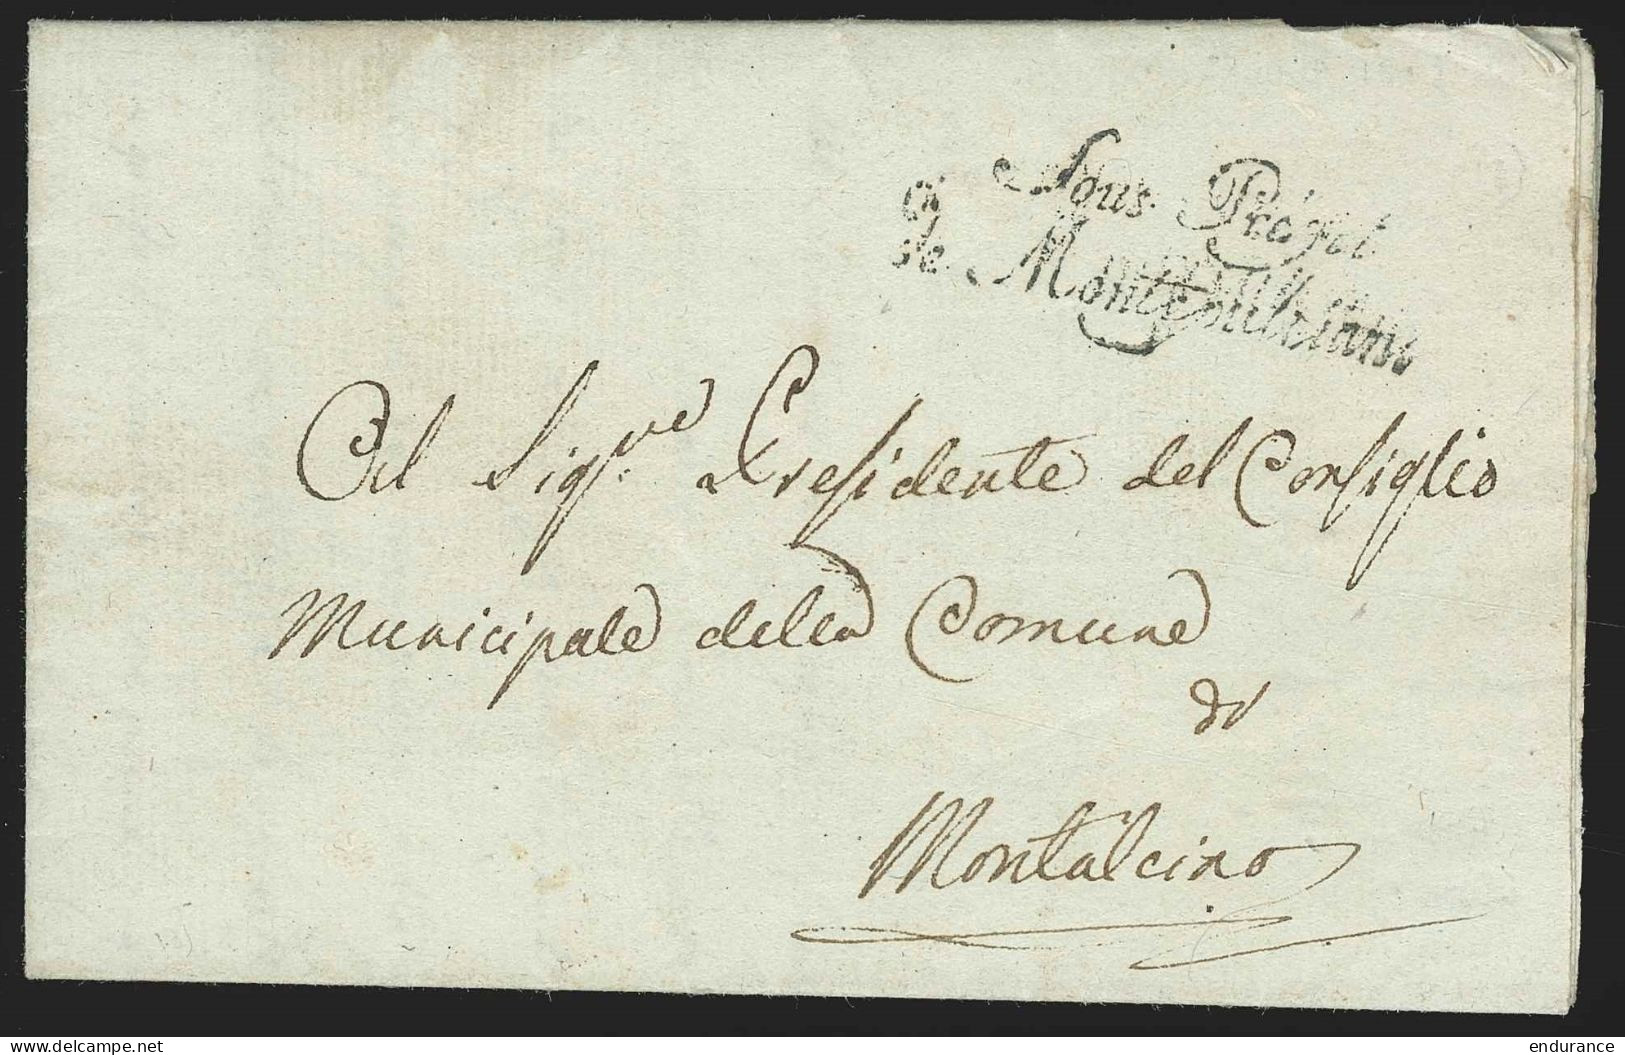 Sous Préfet
de Montepulciano
Al Sigre. Presidente del Consiglio
Municipale della Comune
di
Montalcino
delcampe.net
endurance